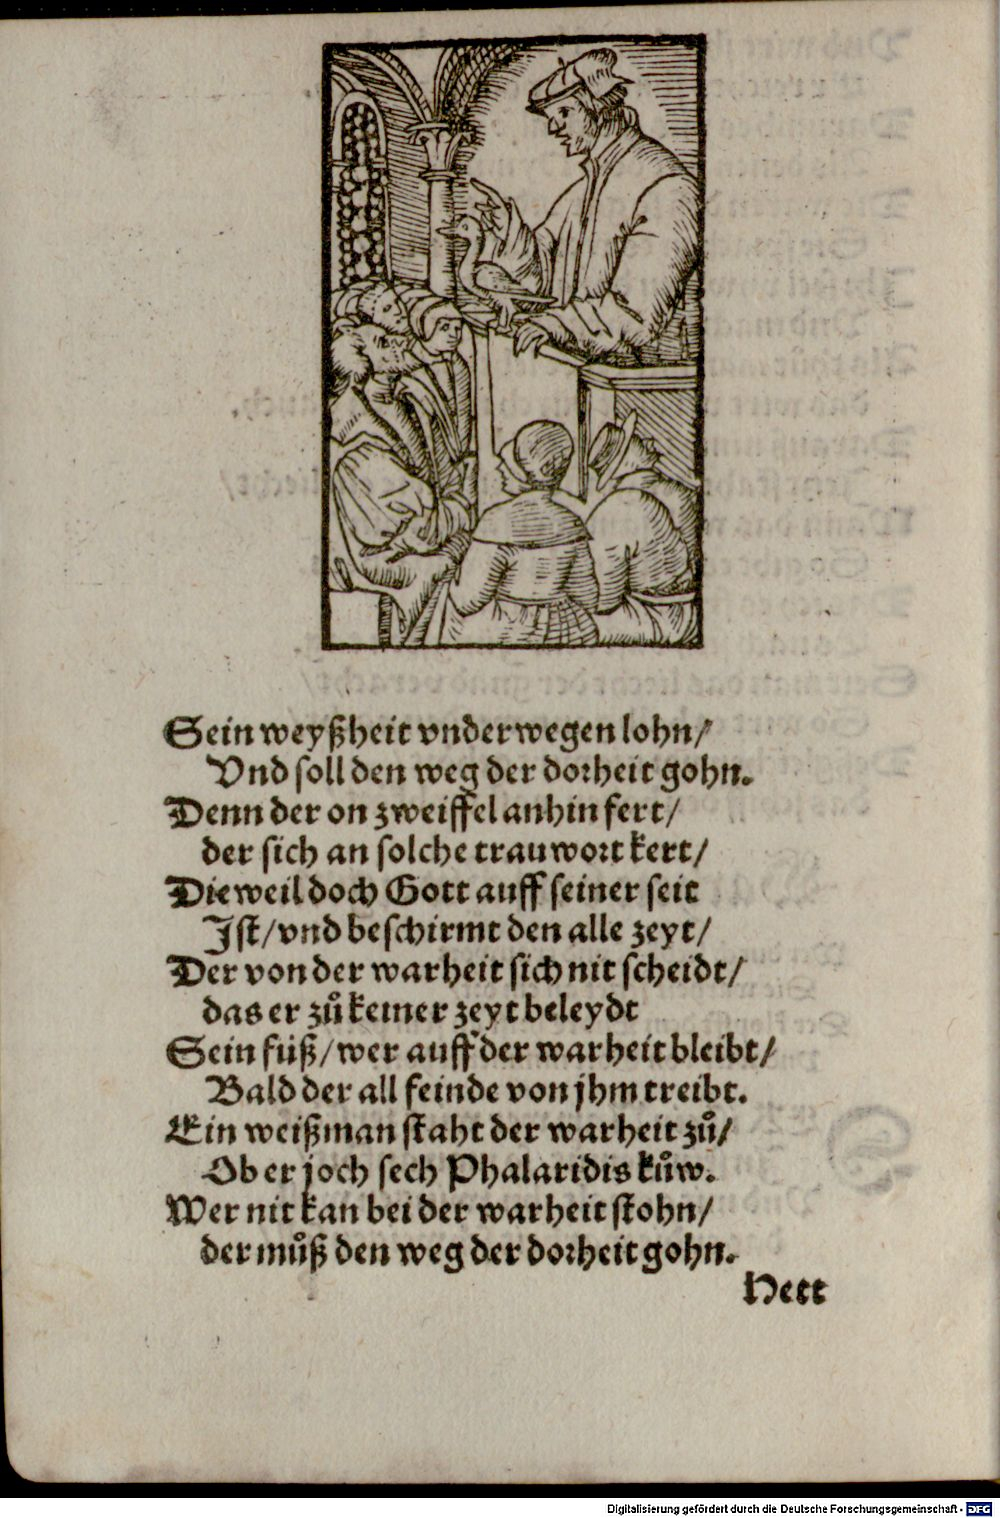 Sein weyßheit vnderwegen lohn/
Vnd soll den weg der dorheit gohn.
Denn der on zweiffel anhin fert/
der sich an solche trauwort kert/
Dieweil doch Gott auff seiner seit
Ist/vnd beschirmt den alle zeyt/
Der von der warheit sich nit scheidt/
das er zuͦ keiner zeyt beleydt
Sein fuͤß/wer auff der warheit bleibt/
Bald der all feinde von jhm treibt.
Ein weißman staht der warheit zuͦ/
Ob er joch sech Phalaridis kuͦw.
Wer nit kan bei der warheit stohn/
der muͦß den weg der dorheit gohn.
Hett
Digitalisierung gefördert durch die Deutsche Forschungsgemeinschaft - DFG